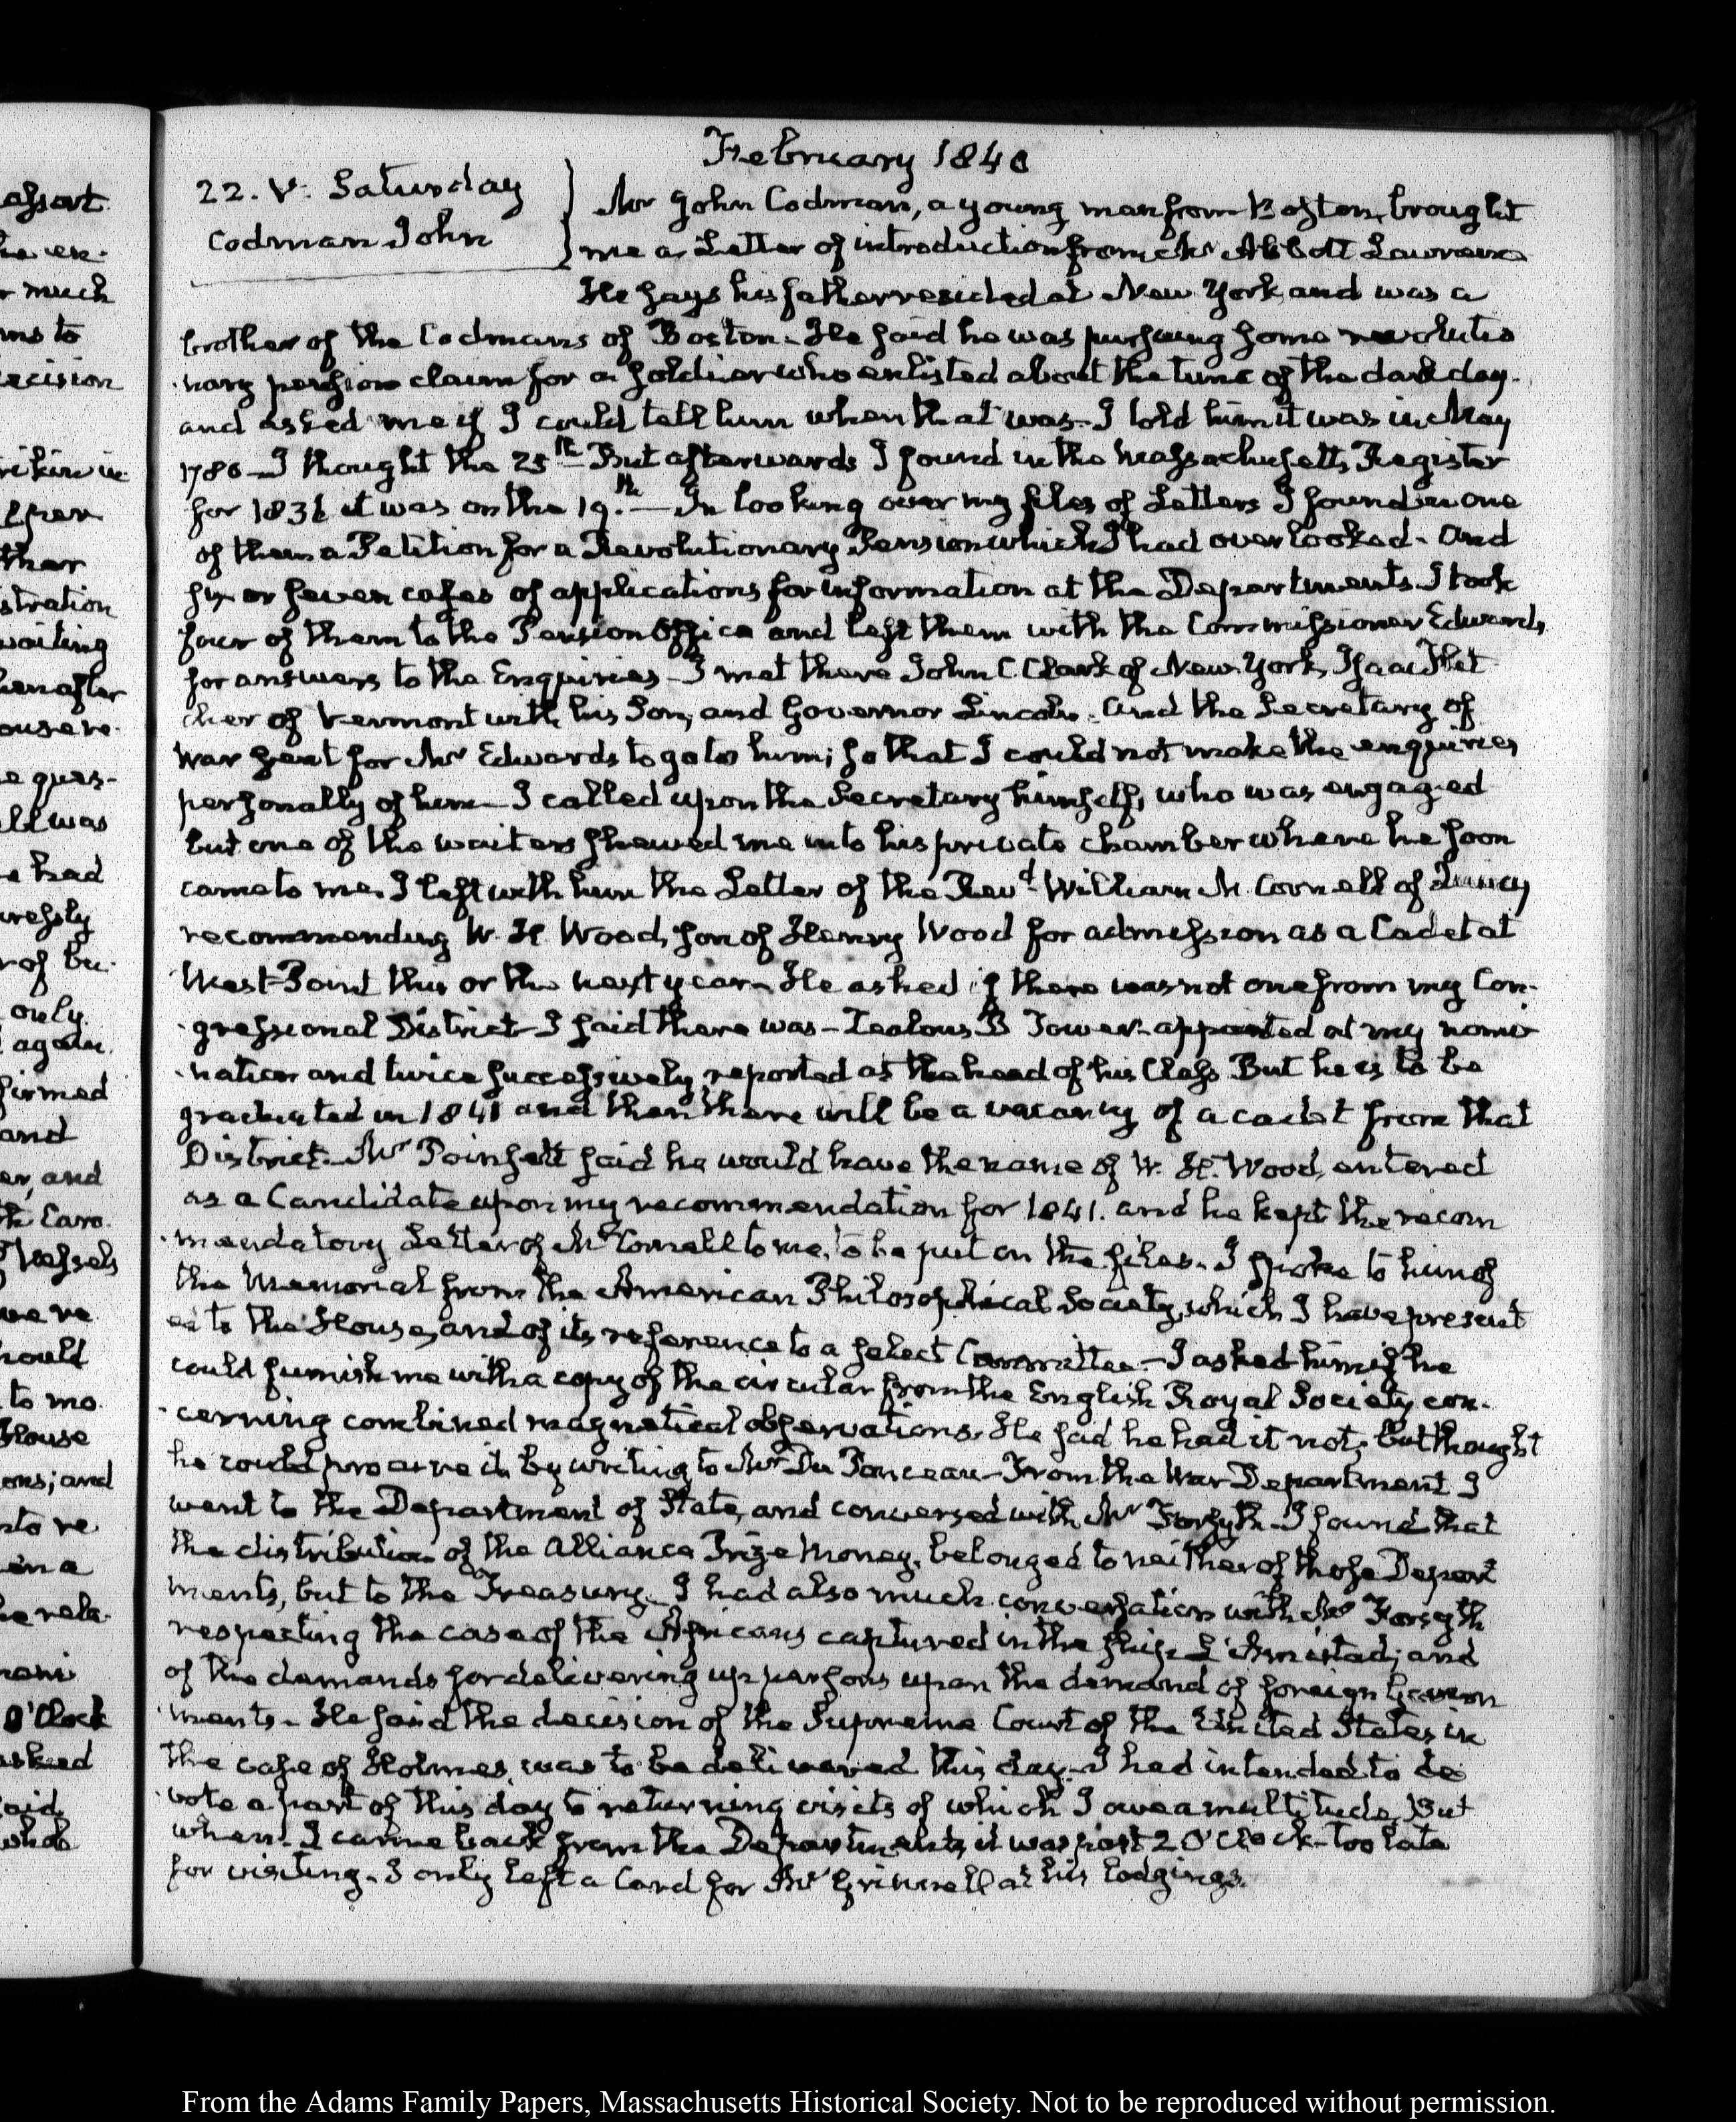 February 1840
22. V. Saturday
Codman John
Mr John Codman, a young man from Boston, brought
me a Letter of introduction from Mr Abbott Lawrence
He says his father resided at New York, and was a
brother of the Codmans of Boston. He said he was pursuing some revolutio
nary pension claim for a soldier who enlisted about the time of the dark day.
and asked me if I could tell him when that was. I told him it was in May
1780 — I thought the 25th — But afterwards I found in the Massachusetts Register
for 1831 it was on the 19.th — In looking over my files of Letters I found in one
of them a Petition for a Revolutionary Pension which I had overlooked. and
six or seven cases of applications for information at the Departments. I took
four of them to the Pension Office and left them with the Commissioner Edwards,
for answers to the Enquiries — I met there John C. Clark of New York, Isaac Flet
cher of Vermont with his Son, and Governor Lincoln. and the Secretary of
War sent for Mr Edwards to go to him; so that I could not make the enquiries
personally of him — I called upon the Secretary himself, who was engaged
but one of the waiters shewed me into his private chamber where he soon
came to me. I left with him the Letter of the Revd William M. Cornell of Quincy
recommending W. H. Wood, son of Henry Wood for admission as a Cadet at
West-Point this or the next year — He asked if there was not one from my Con-
gressional District — I said there was — Zealous B Tower — appointed at my nomi
nation and twice successively reported as the head of his Class. But he is to be
graduated in 1841 and then there will be a vacancy of a cadet from that
District. Mr Poinsett said he would have the name of W. H. Wood, entered
as a Candidate upon my recommendation for 1841. and he kept the recom
mendatory Letter of Mr Cornell to me, to be put on the files. I spoke to him of
the Memorial from the American Philosophical Society, which I have present
ed to the House, and of its reference to a select Committee — I asked him if he
could furnish me with a copy of the circular from the English Royal Society con-
cerning combined magnetical observations. He said he had it not; but thought
he could procure it by writing to Mr Du Ponceau — From the War Department I
went to the Department of State, and conversed with Mr Forsyth — I found that
the distribution of the Alliance Prize Money, belonged to neither of those Depart
ments, but to the Treasury. I had also much conversation with Mr Forsyth
respecting the case of the Africans captured in the ship L'Amistad; and
of the demands for delivering up persons upon the demand of foreign Govern
ments. He said the decision of the Supreme Court of the United States in
the case of Holmes, was to be delivered this day — I had intended to de
vote a part of this day to returning visits of which I owe a multitude, But
when I came back from the Departments it was past 2 O'Clock — too late
for visiting. I only left a Card for Mr Grinnell at his lodgings.
From the Adams Family Papers, Massachusetts Historical Society. Not to be reproduced without permission.